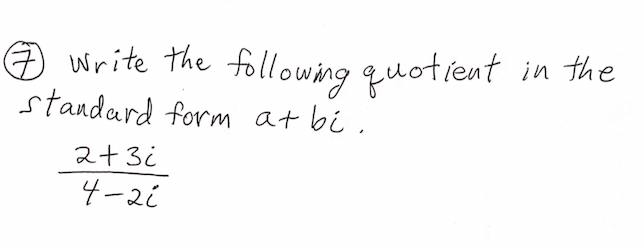 ⑦ Write the following quotient in the
standard form a+bi.
2+3i
4-2i